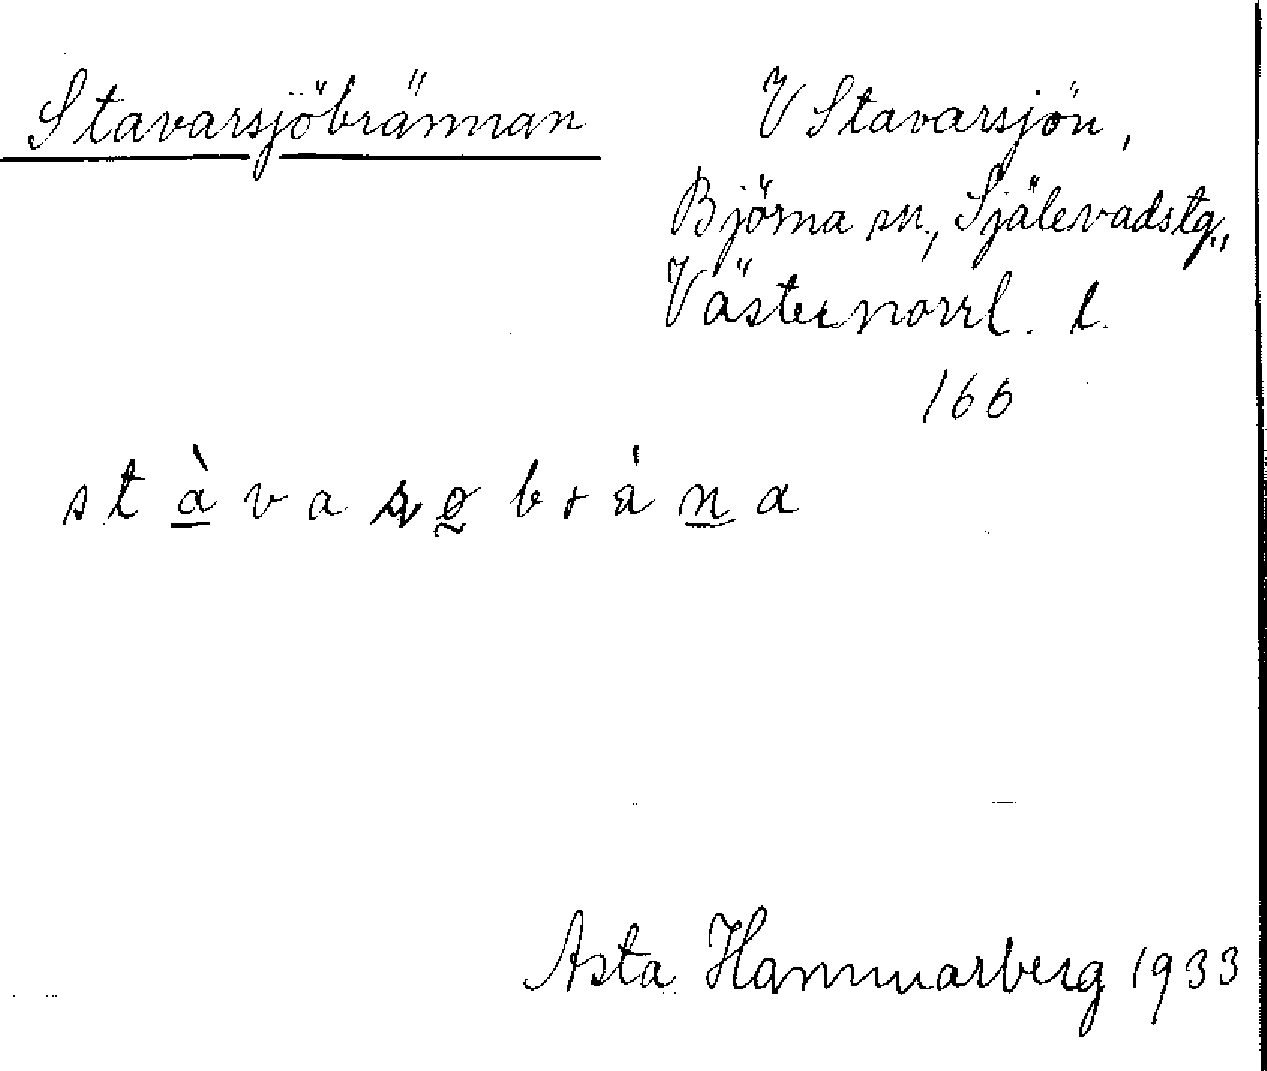 Stavarsjöbrännan
V Stavarsjön,
Björna sn., Själevadstg.,
Västernorrl. l.
166
Asta Hammarberg 1933